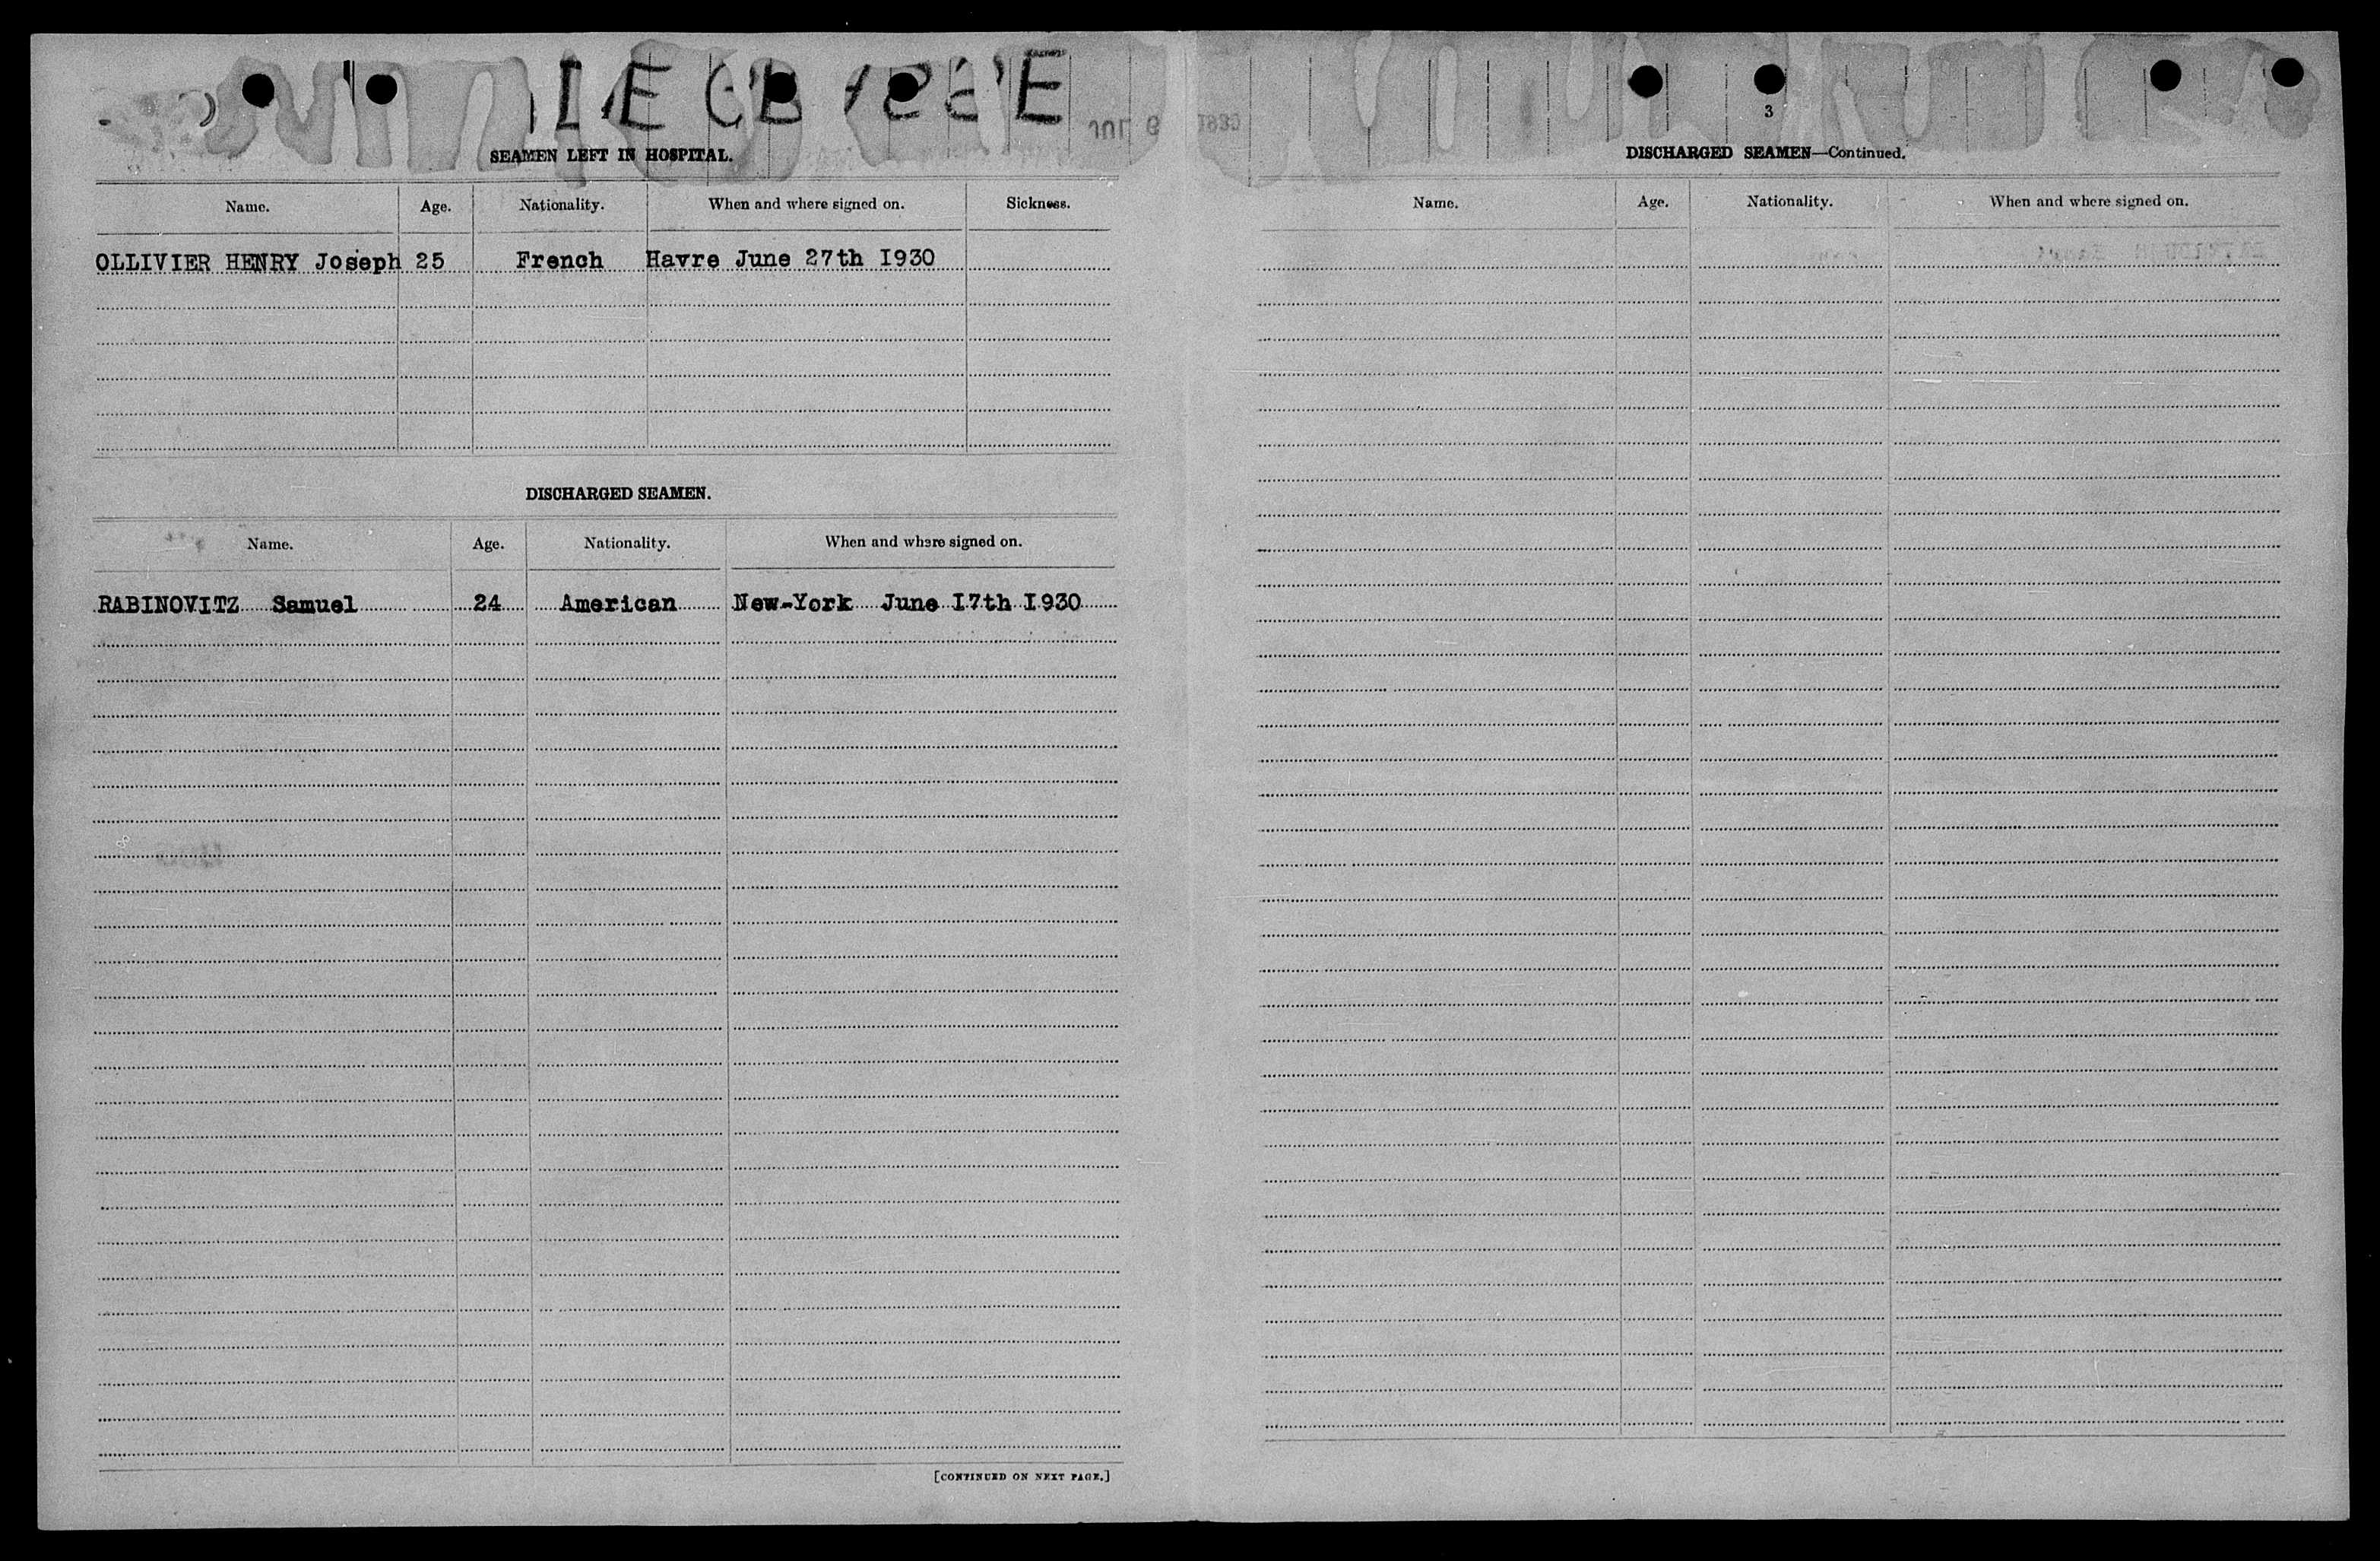 SEAMEN LEFT IN HOSPITAL.
Name. Age. Nationality. When and where signed on. Sickness.
OLLIVIER HENRY Joseph 25 French Havre June 27th I930
DISCHARGED SEAMEN.
Name. Age. Nationality. When and where signed on.
RABINOVITZ Samuel 24 American New-York June I7th I930
[CONTINUED ON NEXT PAGE.]
3
DISCHARGED SEAMEN—Continued.
Name. Age. Nationality. When and where signed on.